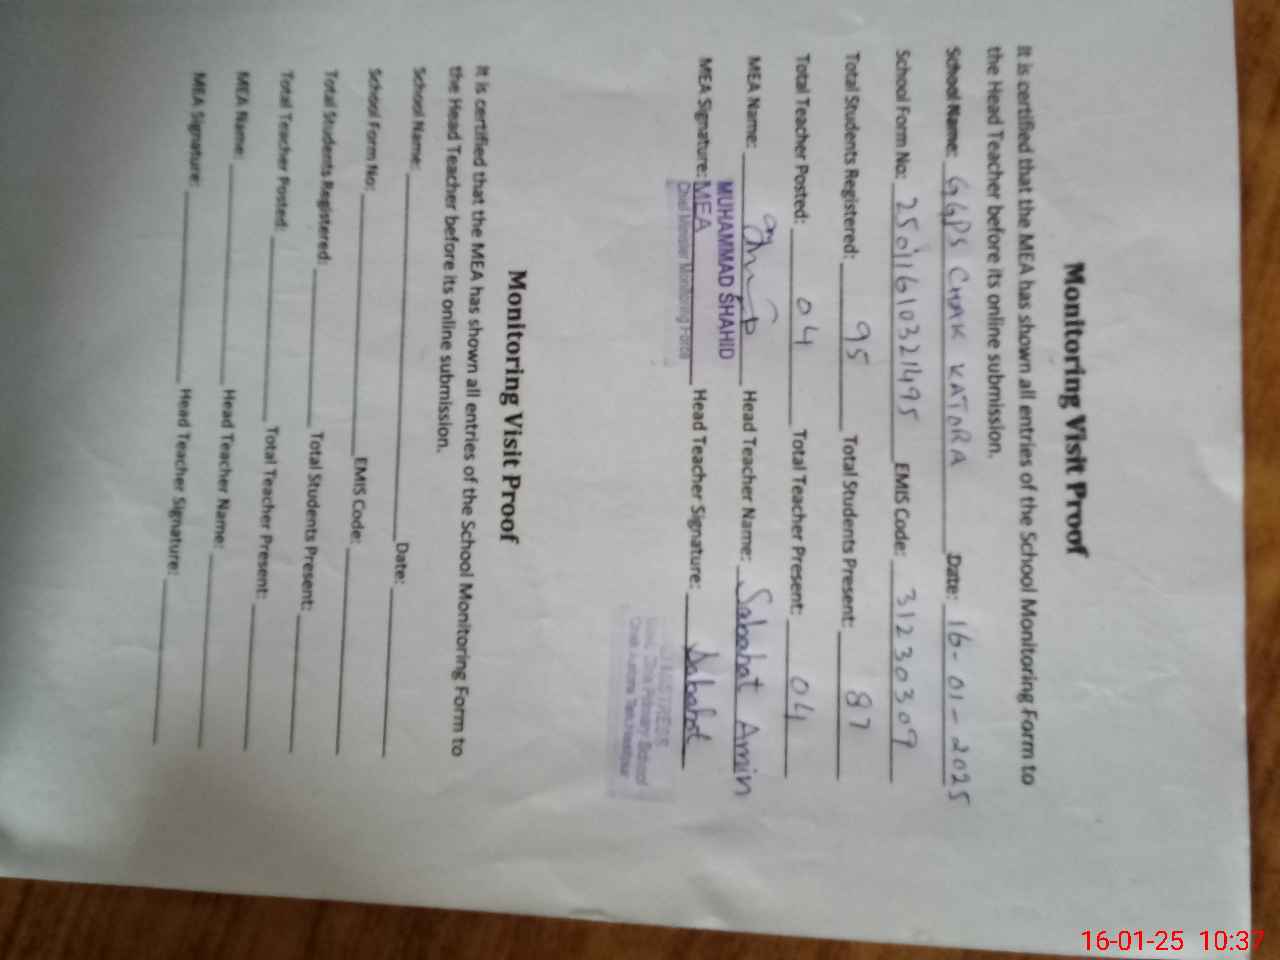 Monitoring Visit Proof
It is certified that the MEA has shown all entries of the School Monitoring Form to
the Head Teacher before its online submission.
School Name: GGPS CHAK KATORA Date: 16-01-2025
School Form No: 25011610321495 EMIS Code: 31230309
Total Students Registered: 95 Total Students Present: 87
Total Teacher Posted: 04 Total Teacher Present: 04
MEA Name: Head Teacher Name: Sabahat Amin
MUHAMMAD SHAHID
MEA Signature: MEA Head Teacher Signature: Sabahat
Chief Minister Monitoring Force
Primary School
Monitoring Visit Proof
It is certified that the MEA has shown all entries of the School Monitoring Form to
the Head Teacher before its online submission.
School Name: Date:
School Form No: EMIS Code:
Total Students Registered: Total Students Present:
Total Teacher Posted: Total Teacher Present:
MEA Name: Head Teacher Name:
MEA Signature: Head Teacher Signature:
16-01-25 10:37